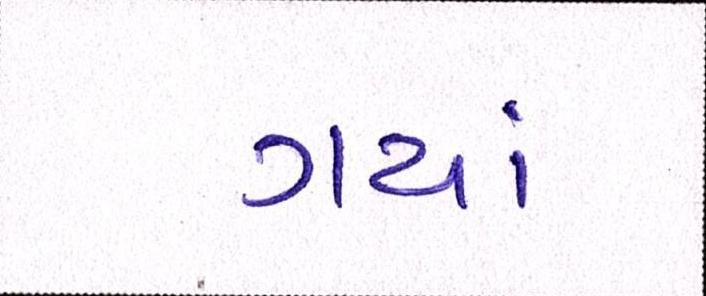 ગયાં